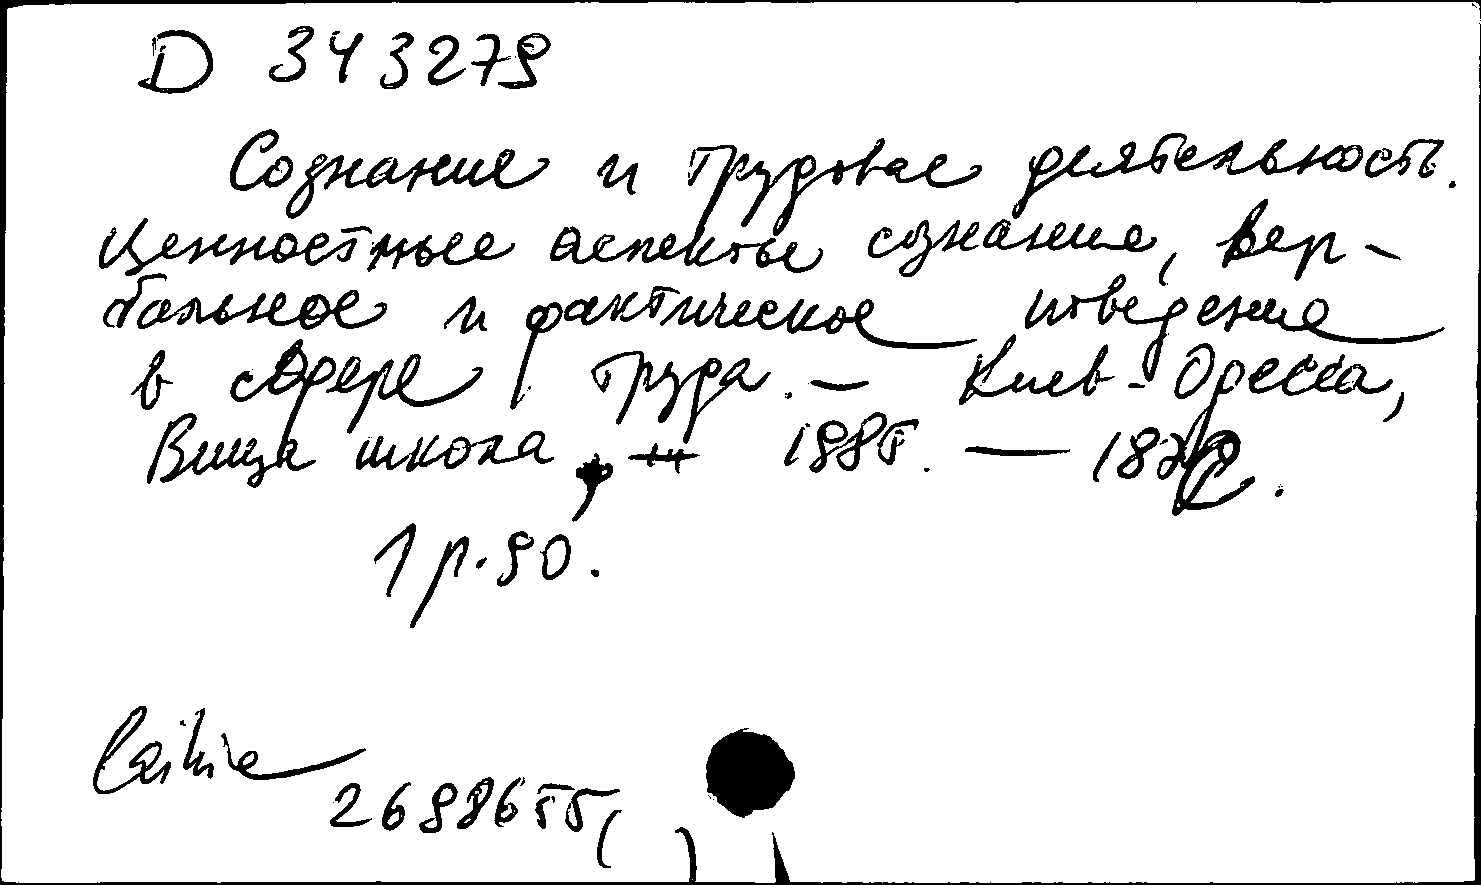 D 343279
Сознание и трудовая деятельность.
Ценностные аспекты сознания, вер-
бальное и фактическое поведение
в сфере труда. — Киев-Одесса,
Вища школа, 1985. —
1 р. 90.